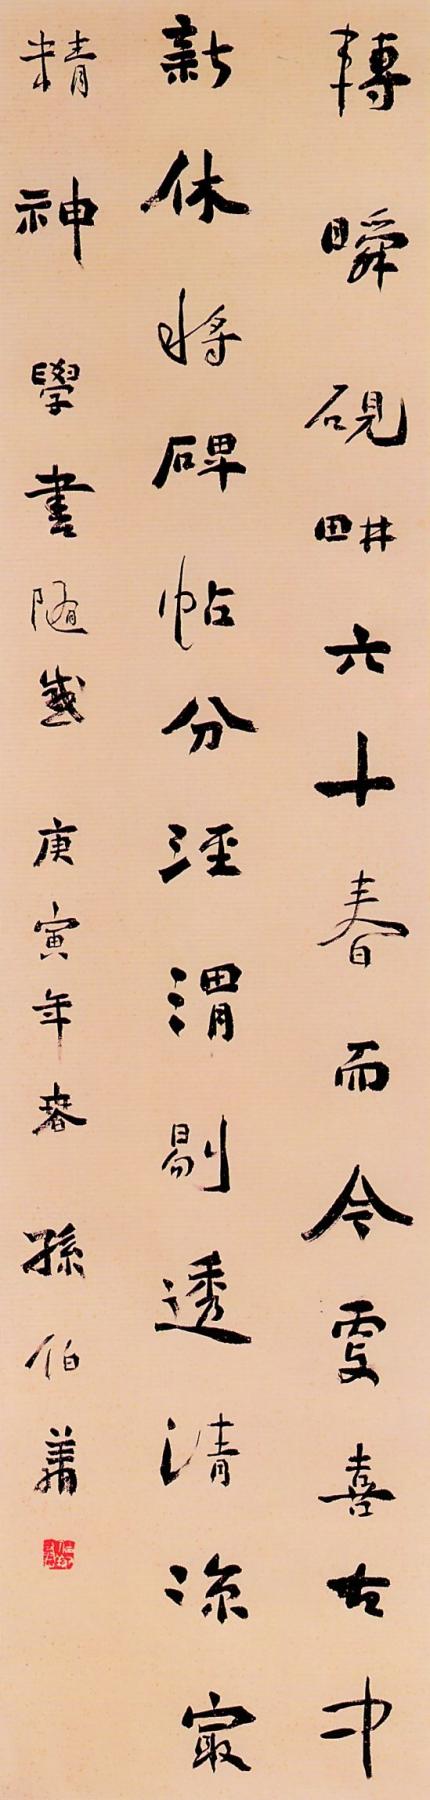 轉瞬硯畊六十春而今更喜古中
新休將碑帖分涇渭剔透清涼㝡
精神 學書隨感 庚寅年春 孫伯翔